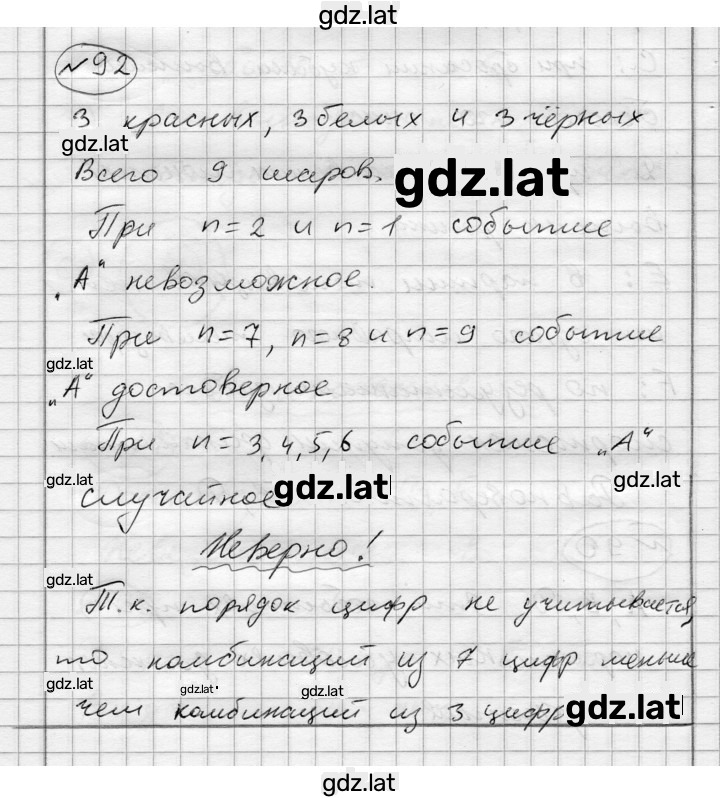 gdz.lat
№92
3 красных, 3 белых и 3 чёрных
gdz.lat
Всего 9 шаров.
gdz.lat
При n=2 и n=1 событие
„А“ невозможное.
При n=7, n=8 и n=9 событие
gdz.lat
„А“ достоверное
При n=3,4,5,6 событие „А“
gdz.lat
случайное
gdz.lat
gdz.lat
Неверно!
gdz.lat
Т.к. порядок цифр не учитывается,
то комбинаций из 7 цифр меньше
gdz.lat
gdz.lat
gdz.lat
чем комбинаций из 3 цифр
gdz.lat
gdz.lat